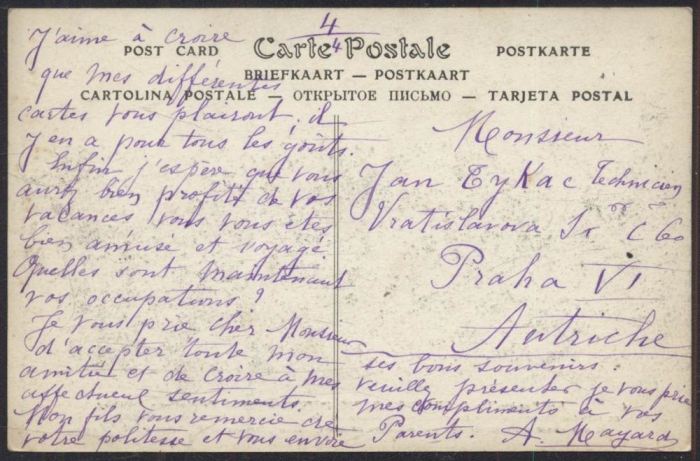 4/4
POST CARD Carte Postale POSTKARTE
BRIEFKAART — POSTKAART
CARTOLINA POSTALE — ОТКРЫТОЕ ПИСЬМО — TARJETA POSTAL
J'aime à croire
que mes différentes
cartes vous plairont, il
y en a pour tous les goûts.
Enfin j'espère que vous
aurez bien profité de vos
vacances vous vous etes
bien amusé et voyagé
Quelles sont maintenant
vos occupations ?
Je vous prie cher Monsieur
d'accepter toute mon
amitié et de croire à mes
affectueux sentiments.
Mon fils vous remercie de
votre politesse et vous envoie
ses bons souvenirs.
veuille présenter je vous prie
mes compliments à vos
Parents. A. Mayard
Monsieur
Jan Tykac Technicien
Vratislavova Tr č 60
Praha VI
Autriche